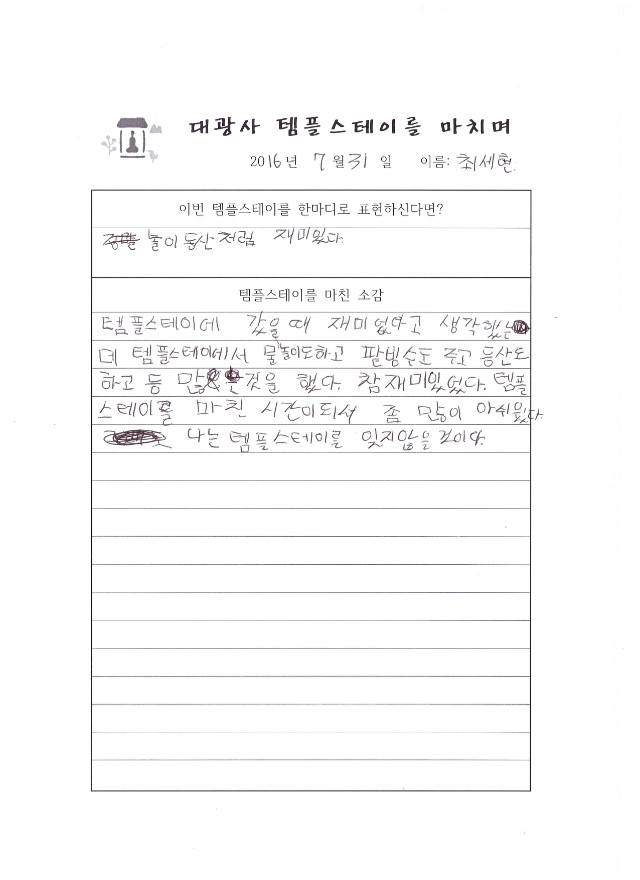 대광사 템플스테이를 마치며
2016년 7월 31일 이름: 최세현
이번 템플스테이를 한마디로 표현하신다면?
놀이동산처럼 재미있다.
템플스테이를 마친 소감
템플스테이에 갔을때 재미없다고 생각했는
데 템플스테이에서 물놀이도하고 팥빙수도 주고 등산도
하고 등 많은것을 했다. 참재미있었다. 템플
스테이를 마친 시간이되서 좀 많이 아쉬웠다.
나는 템플스테이를 잊지않을 것이다.